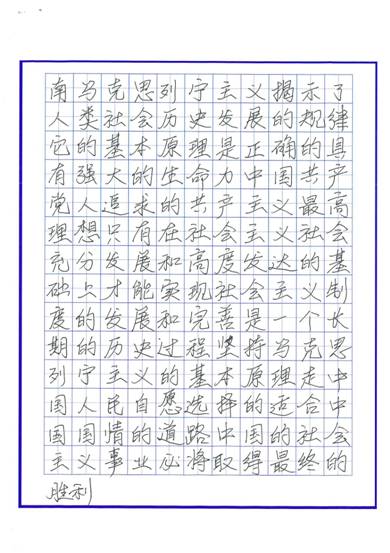 南马克思列宁主义揭示了
人类社会历史发展的规律
它的基本原理是正确的具
有强大的生命力中国共产
党人追求的共产主义最高
理想只有在社会主义社会
充分发展和高度发达的基
础上才能实现社会主义制
度的发展和完善是一个长
期的历史过程坚持马克思
列宁主义的基本原理走中
国人民自愿选择的适合中
国国情的道路中国的社会
主义事业必将取得最终的
胜利